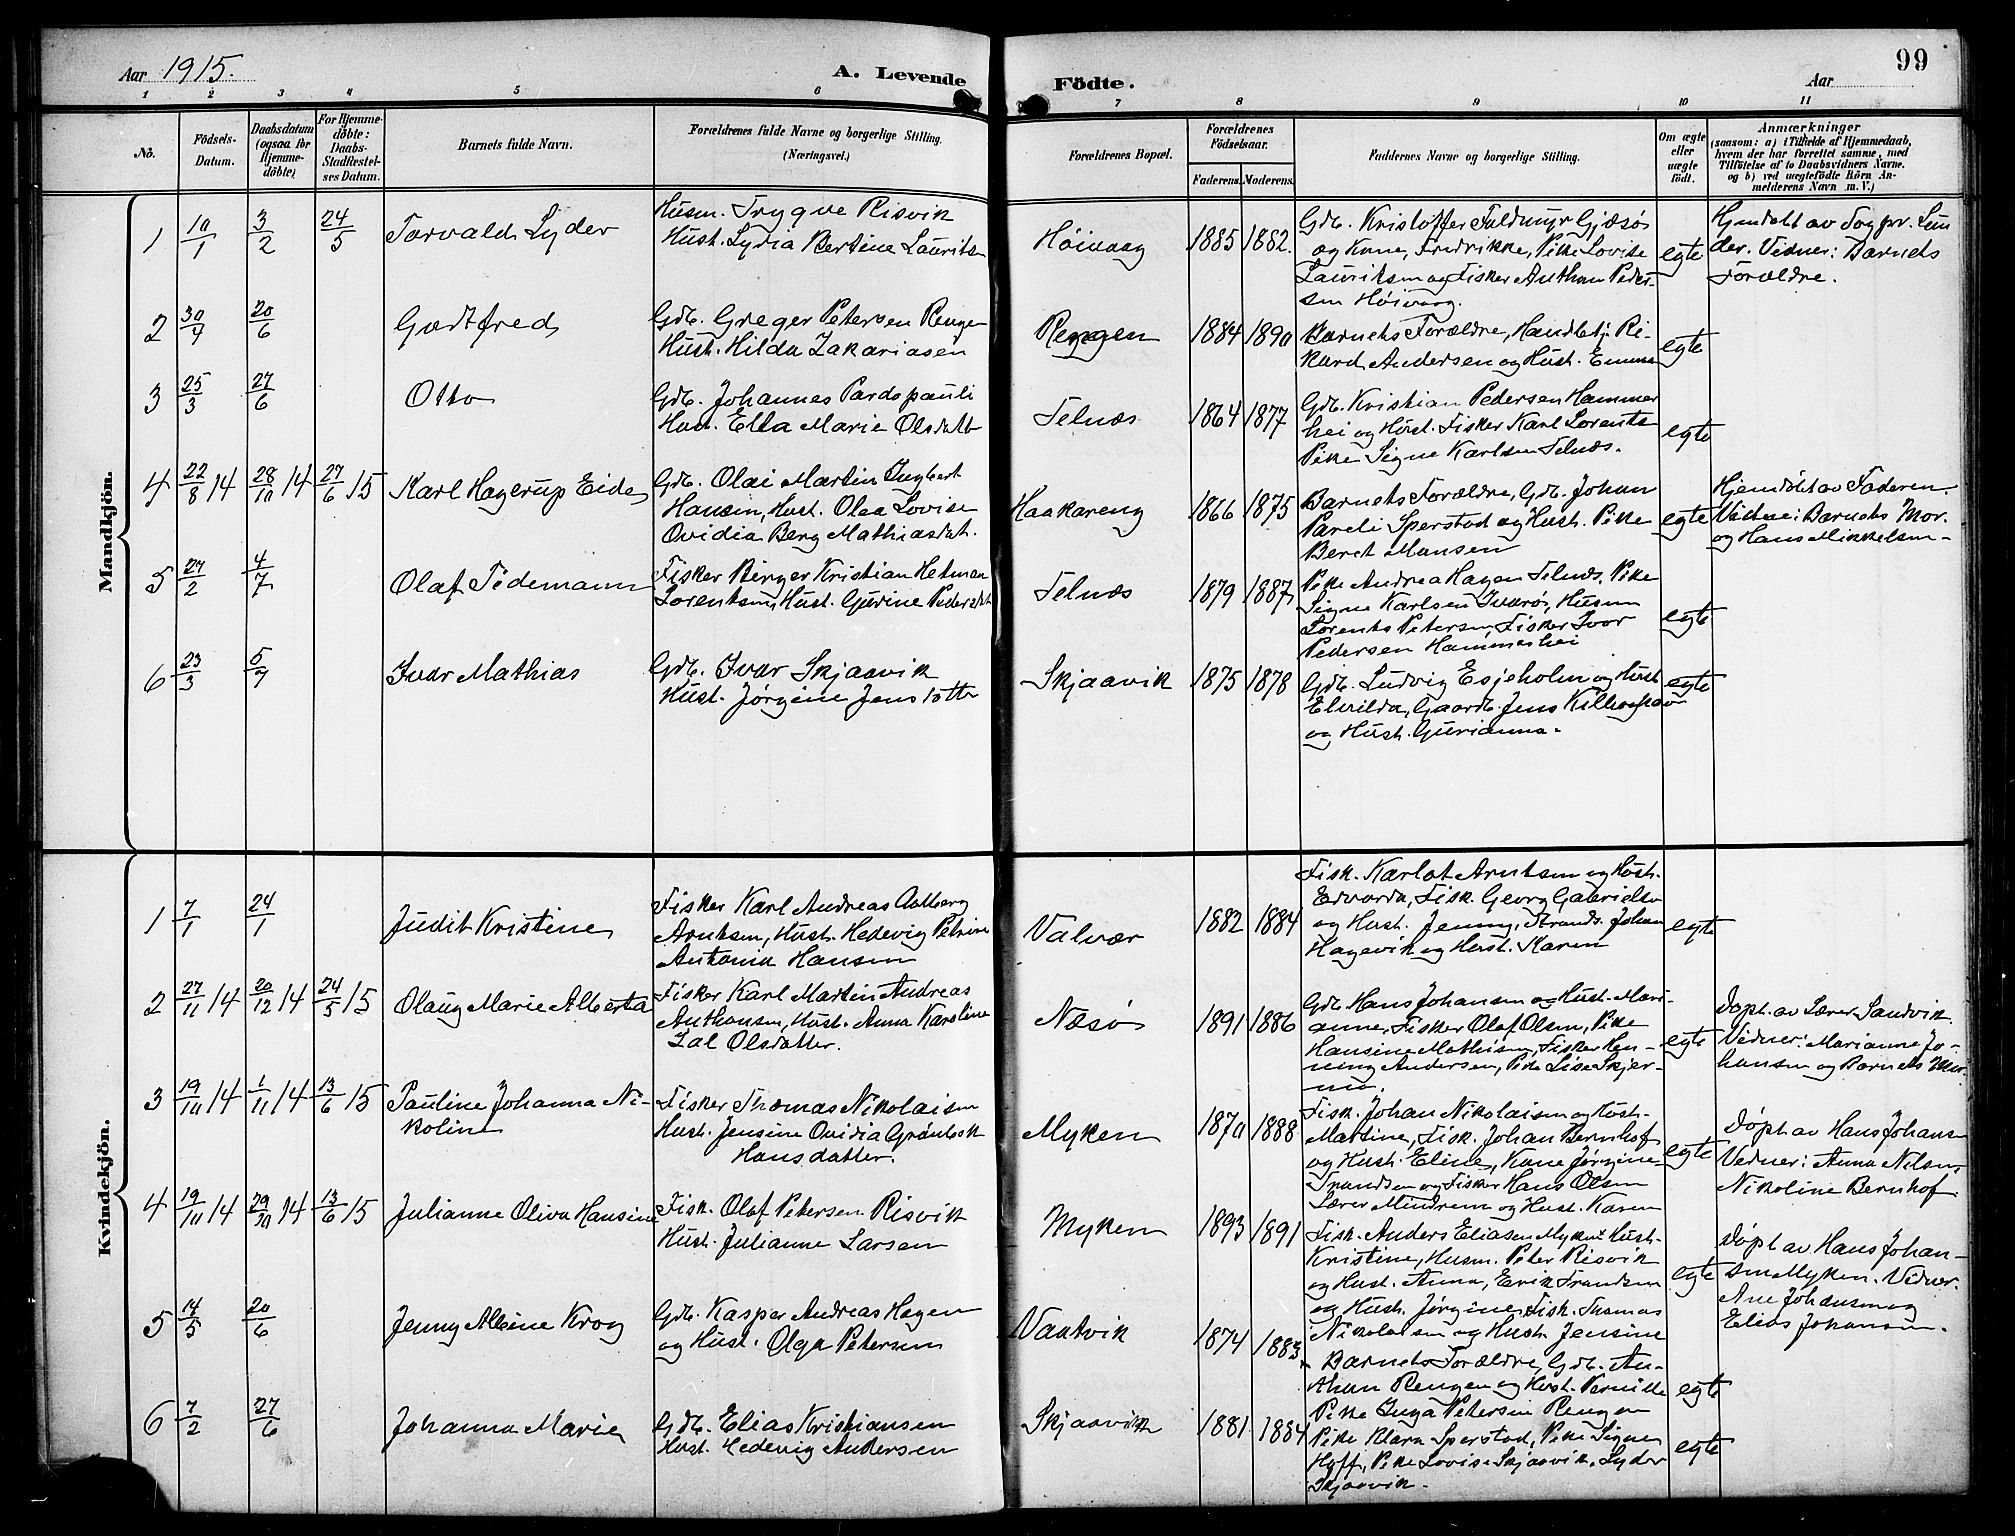 Aar 1915.
A. Levende Födte.
Aar
99
1 2 3 4 5 6 7 8 9 10 11
No.
Födsels-
Datum.
Daabsdatum
(ogsaa for
Hjemme-
döbte)
For Hjemme-
döbte:
Daabs-
Stadfæstel-
ses Datum.
Barnets fulde Navn.
Forældrenes fulde Navne og borgerlige Stilling.
(Næringsvei.)
Forældrenes Bopæl.
Forældrenes
Födselsaar.
Faderens. Moderens.
Faddernes Navne og borgerlige Stilling.
Om ægte
eller
uægte
født.
Anmærkninger
(saasom: a) i Tilfælde af Hjemmedaab,
hvem der har forrettet samme, med
Tilföielse af to Daabsvidners Navne.
og b) ved uægtefödte Börn An-
melderens Navn m. V.)
Mandkjön.
1 10/1 3/2 24/5 Torvald Lyder
Husm. Trygve Risvik
Hust. Lydia Bertine Laurits
Høivaag 1885 1882.
Gdb. Kristoffer Fuldmyr Gjæsø
og Kone, Fredrikke, Pike Lovise
Lauritsen og Fisker Anthon Peder-
sen Høivaag.
egte
Hjemdøbt av Sogpr. Sun
der. Vidner: Barnets
Forældre.
2 30/4 20/6 Godtfred
Gdb. Greger Petersen Rengen
Hust. Hilda Zakariasen
Rengen 1884 1890
Barnets Forældre, Handlebtj. Ri-
kard Andersen og Hust. Emma
egte
3 25/3 27/6 Otto
Gdb. Johannes Pardo pauli
Hust. Ella Marie Olsdatt
Telnæs 1864 1877
Gdb. Kristian Pedersen Hammer
hei og Hust. Fisker Karl Lorents
Pike Signe Karlsen Telnæs.
egte
4 22/8 14 28/10 14 27/6 15 Karl Hagerup Eide
Gdb. Olai Martin Ingbert
Hansen, Hust. Olea Lovise
Ovidia Berg Mathiasdat.
Haakareng 1866 1875
Barnets Forældre, Gdb. Johan
Pareli Sperstad og Hust. Pike
Beret Hansen
egte
Hjemdøbt av Faderen.
Vidne: Barnets Mor.
og Hans Mikkelsen-
5 27/2 4/7 Olaf Tidemann
Fisker Birger Kristian Hetman
Lorentsen, Hust. Gurine Pedersdat
Telnæs 1879 1887
Pike Andrea Hagen Telnæs. Pike
Signe Karlsen Sværø, Husm
Lorents Petersen, Fisker Ivar
Pedersen Hammerhei
egte
6 23/3 5/7 Ivar Mathias
Gdb. Ivar Skjaavik
Hust. Jørgine Jensdotter
Skjaavik 1875 1878
Gdb. Ludvig Esjeholm og Hust
Elvilda, Gaardb. Jens Kilboghavn
og Hust. Gurianna.
egte
Kvindekjön.
1 7/1 24/1 Judit Kristine
Fisker Karl Andreas Aalberg
Arntsen, Hust. Hedevig Petrine
Antonia Hansen
Valvær 1882 1884
Fisk. Karlot Arntsen og Hust.
Edvarda, Fisk. Georg Gabrielsen
og Hust. Jenny, Strands. Johan
Hagevik og Hust. Karen
egte
2 27/11 14 20/12 14 24/5 15 Olaug Marie Alberta
Fisker Karl Martin Andreas
Anthonsen, Hust. Anna Karoline
Zal Olsdatter.
Næsø 1891 1886
Gdb. Hans Johansen og Hust. Mari-
anne, Fisker Olaf Olsen, Pike
Hansine Mathisen, Fisker Hen-
ning Andersen, Pike Lise Skjer-
mo.
egte
Døpt. av Lærer Sandvik.
Vidner: Marianne Jo-
hansen og Barnets Mor.
3 19/10 14 1/11 14 13/6 15 Pauline Johanna Ni-
koline
Fisker Thomas Nikolaisen
Hust. Jensine Ovidia Grønbek
Hansdatter.
Myken 1870 1888
Fisk. Johan Nikolaisen og Hust.
Martine, Fisk. Johan Bernhof
og Hust. Eline, Kone Jørgine
Trandsen og Fisker Hans Olsen
Lærer Mindrem og Hust. Karen
egte
Døpt av Hans Johansen
Vidner: Anna Nilsen,
Nikoline Bernhof.
4 19/10 14 29/10 14 13/6 15 Julianne Oliva Hansine
Fisk. Olaf Petersen Risvik
Hust. Julianne Larsen
Myken 1893 1891
Fisk. Anders Eliasen Myken Hust.
Kristine, Husm. Peter Risvik
og Hust. Anna, Erik Trandsen
og Hust. Jørgine, Fisk. Thomas
Nikolaisen og Hust. Jensine
egte
Døpt av Hans Johan-
sen Myken. Vidner.
Ane Johansen og
Elias Johansen.
5 14/5 20/6 Jenny Albine Krog
Gdb. Kasper Andreas Hagen
og Hust. Olga Petersen
Vaatvik 1874 1883
Barnets Forældre, Gdb. An-
thon Rengen og Hust. Pernille
Pike Inga Petersen Rengen
egte
6 7/2 27/6 Johanna Marie
Gdb. Elias Kristiansen
Hust. Hedevig Andersen
Skjaavik 1881 1884
Pike Klara Sperstad, Pike Signe
Hoff, Pike Lovise Skjaavik, Lyder
Skjaavik.
egte